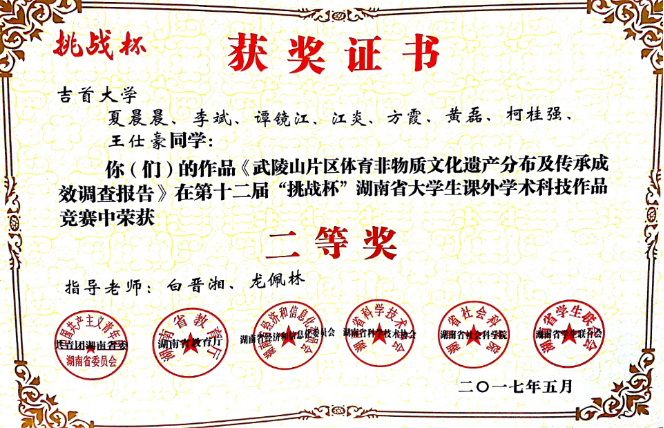 挑战杯
获奖证书
吉首大学
夏晨晨、李斌、谭镜江、江炎、方霞、黄磊、柯桂强、
王仕豪同学：
你（们）的作品《武陵山片区体育非物质文化遗产分布及传承成
效调查报告》在第十二届“挑战杯”湖南省大学生课外学术科技作品
竞赛中荣获
二等奖
指导老师：白晋湘、龙佩林
共青团湖南省委
湖南省委员会
湖南省教育厅
湖南省经济和信息化委员会
湖南省科学技术协会
湖南省社会科学院
湖南省学生联合会
二〇一七年五月